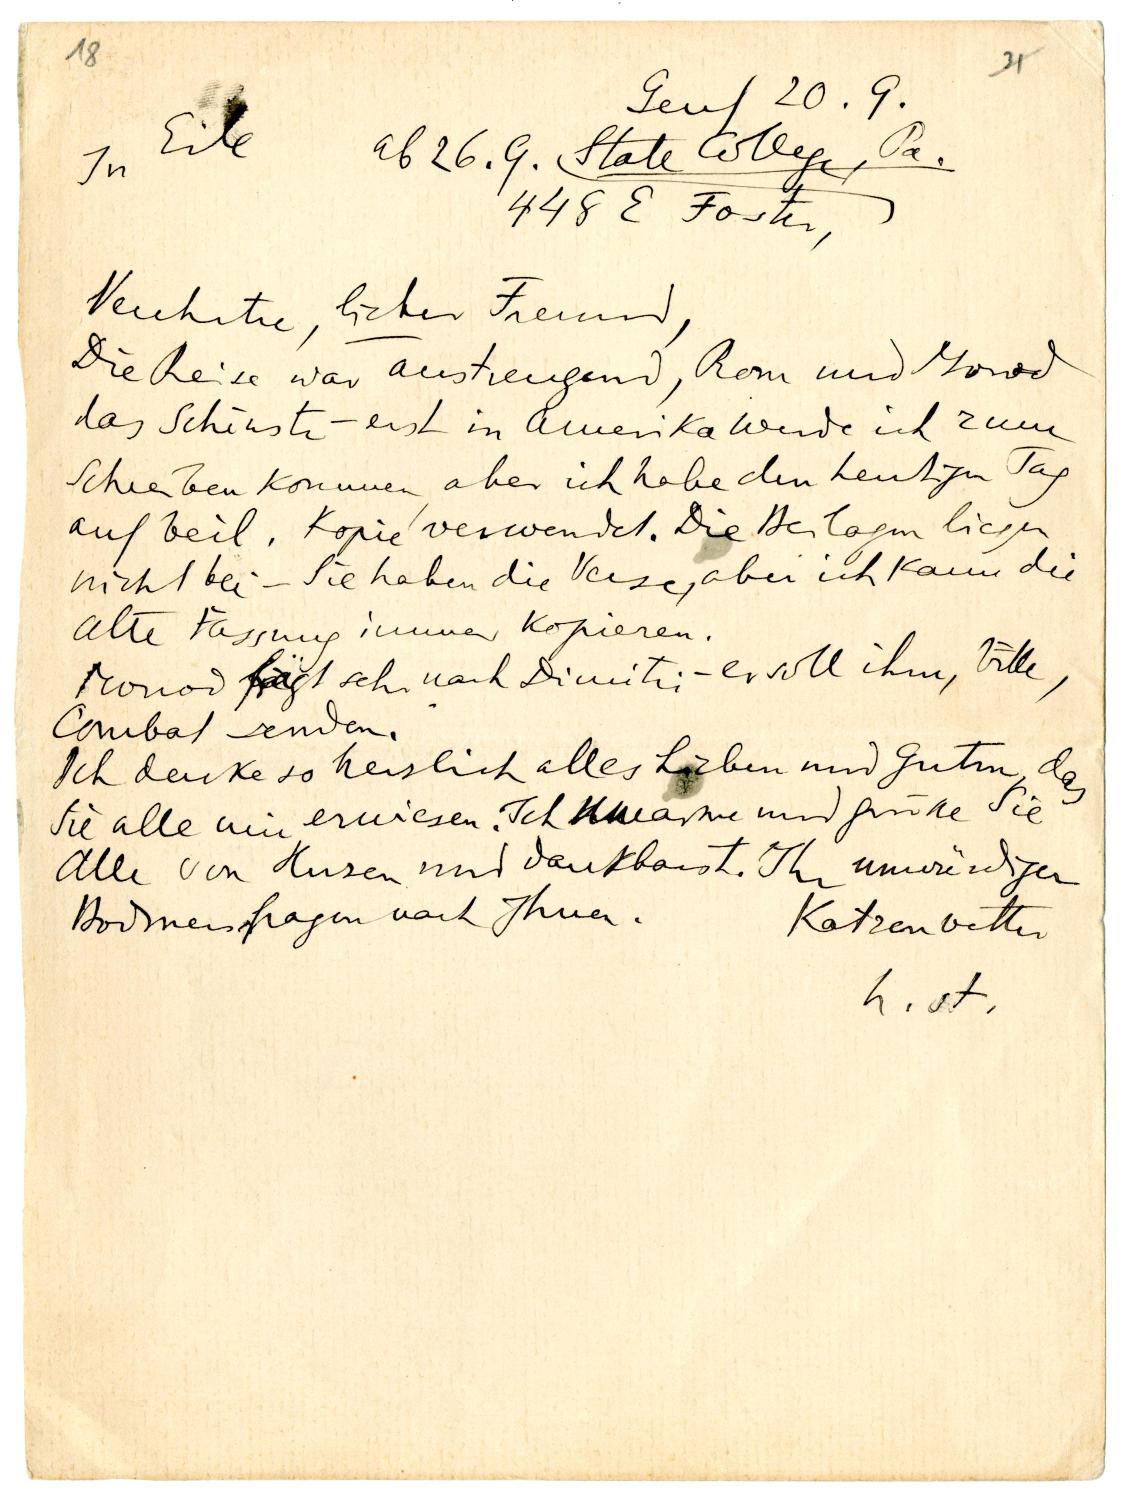 18
Genf 20. 9.
In Eile
ab 26. 9. State College, Pa.
448 E Foster,
Verehrter, lieber Freund,
Die Reise war anstrengend, Rom und Monod
das Schönste – erst in Amerika werde ich zum
Schreiben kommen, aber ich habe den heutigen Tag
auf beil. Kopie verwendet. Die Beilagen liegen
nicht bei – Sie haben die Verse, aber ich kann die
alte Fassung immer kopieren.
Monod fragt sehr nach Dimitri – er soll ihm, bitte,
Combat senden.
Ich denke so herzlich alles Lieben und Guten, das
Sie alle mir erwiesen. Ich umarme und grüße Sie
Alle von Herzen und dankbarst. Ihr unwürdiger
Bodmers fragen nach Ihnen.
Katzenvetter
h. st.